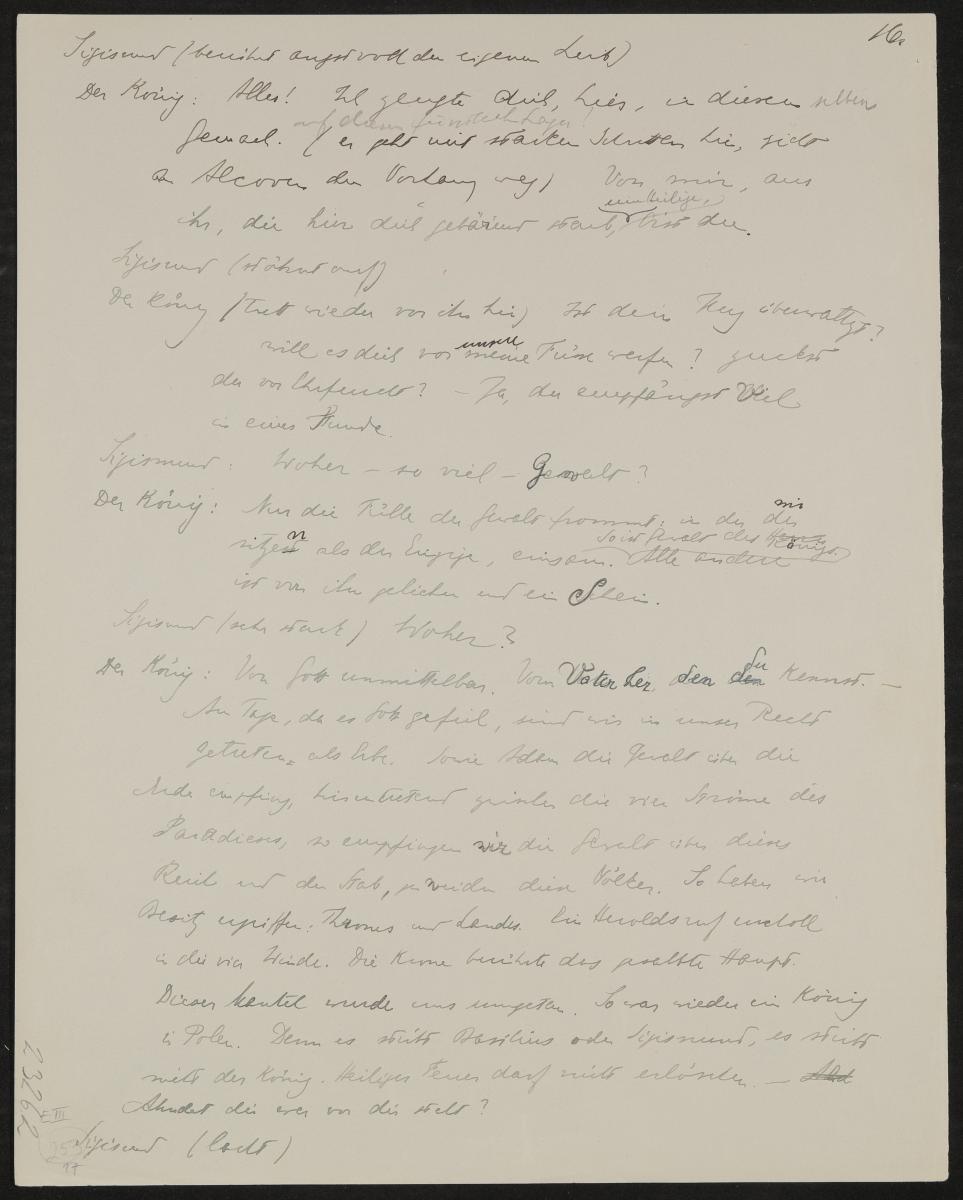 16.
Sigismund (berührt angstvoll den eigenen Leib)
Der König: Alles! Ich zeugte dich, hier, in diesem selben
auf diesem fürstlichen Lager!
Gemach. (er geht mit starken Schritten hin, zieht
am Alcoven den Vorhang weg) Von mir, aus
unheilige,
ihr, die hier dich gebärend starb, bist du.
Sigismund (stöhnt auf)
Der König (tritt wieder vor ihn hin) Ist dein Herz überwältigt?
unsere
will es dich vor meine Füsse werfen? zuckst
du vor Ehrfurcht? – Ja, du empfängst Viel
in einer Stunde.
Sigismund: Woher – so viel – Gewalt?
mir
Der König: Nur die Fülle der Gewalt frommt: in der der
so ist Gewalt des Königs.
sitzen als der Einzige, einsam. Alle andere
ist von ihr geliehen und ein Schein.
Sigismund (sehr stark) Woher?
du
Der König: Von Gott unmittelbar. Vom Vater her, den den kennst. –
Am Tage, da es Gott gefiel, sind wir in unser Recht
getreten als Erbe. Sowie Adam die Gewalt über die
Erde empfing, hineintretend zwischen die vier Ströme des
Paradieses, so empfingen wir die Gewalt über dieses
Reich und den Stab, zu weiden diese Völker. So haben wir
Besitz ergriffen: Thrones und Landes. Ein Heroldsruf erscholl
in die vier Winde. Die Krone berührte das gesalbte Haupt.
Dieser Mantel wurde uns umgetan. So war wieder ein König
in Polen. Denn es stirbt Basilius oder Sigismund, es stirbt
nicht der König. Heiliges Feuer darf nicht erlöschen. –
Ahndet dir wer vor dir steht?
Sigismund (lacht)
E III
23262
253
17